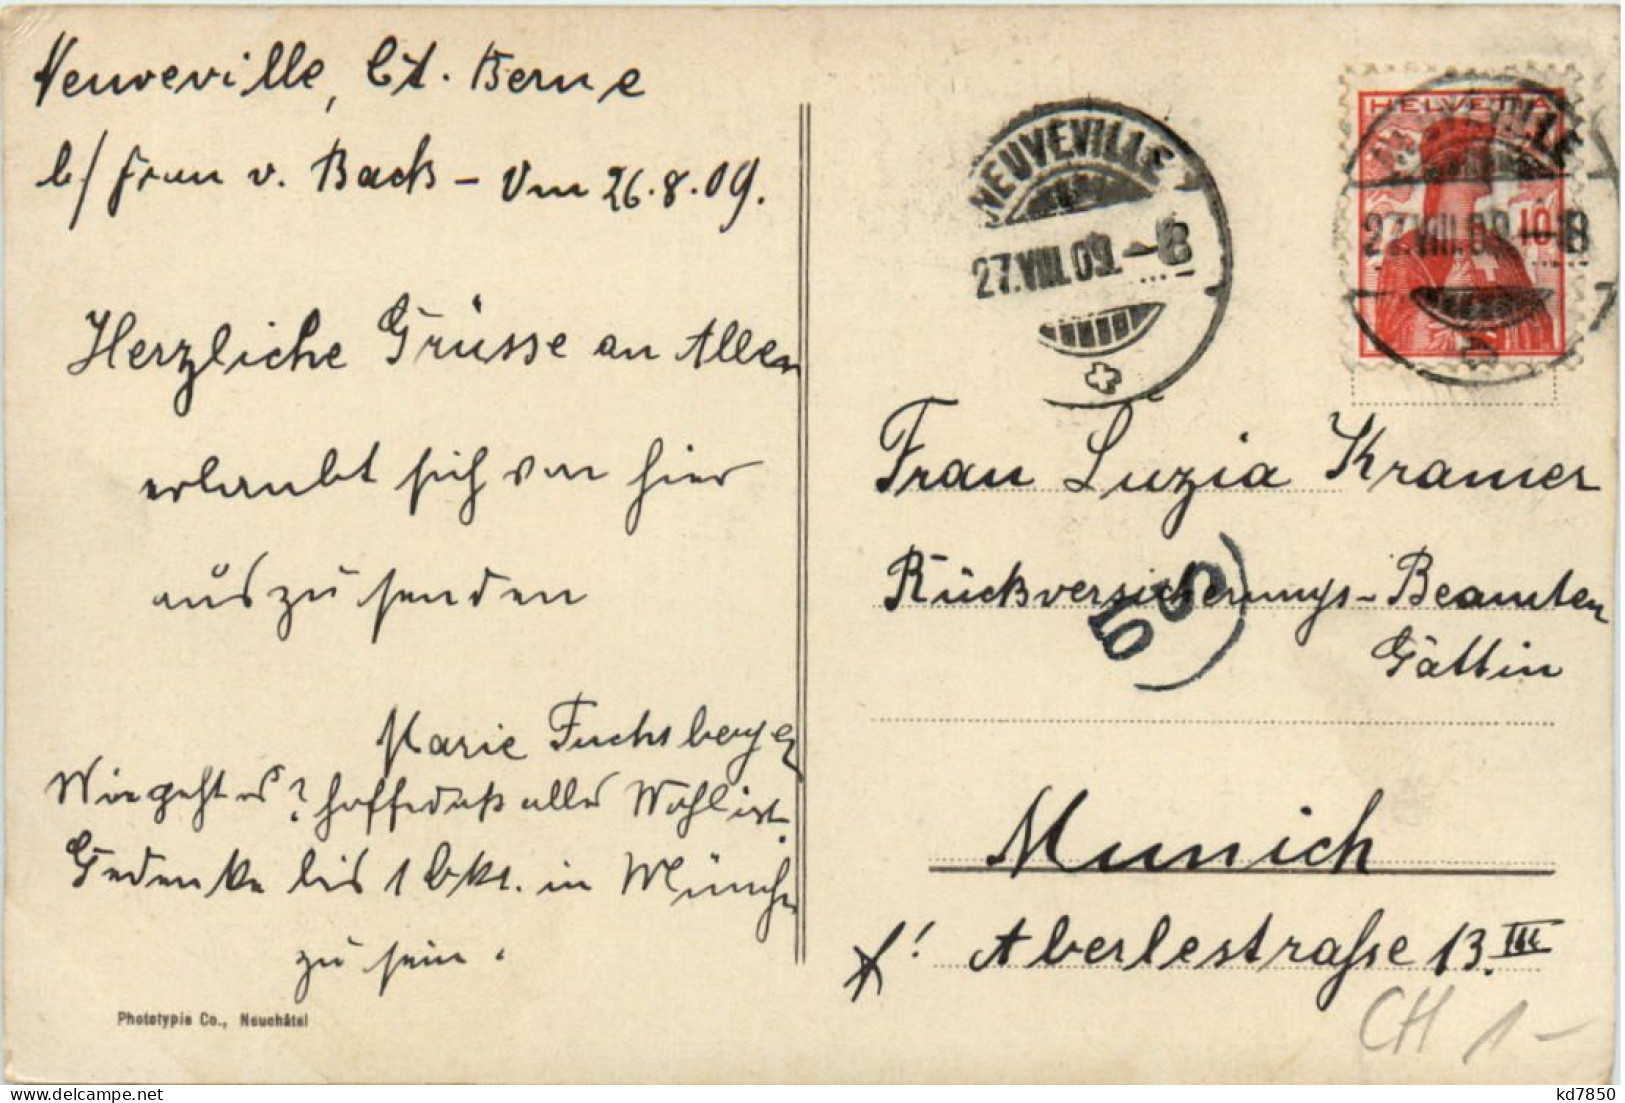 Neuveville, Ct. Berne
b/ Frau v. Back - Vm 26.8.09.
Herzliche Grüsse an Allen
erlaubt sich von hier
auszusenden
Marie Fuchsberger
Wie geht es? hoffe daß alles Wohl ist.
Gedenke bis 1 Okt. in München
zu sein.
Phototypie Co., Neuchâtel
NEUVEVILLE
27.VIII.09.-8
HELVETIA
10
NEUVEVILLE
27.VIII.09.-8
Frau Luzia Kramer
Rückversicherungs-Beamten
Gattin
Munich
Aberlestraße 13. III
CH 1-
kd7850